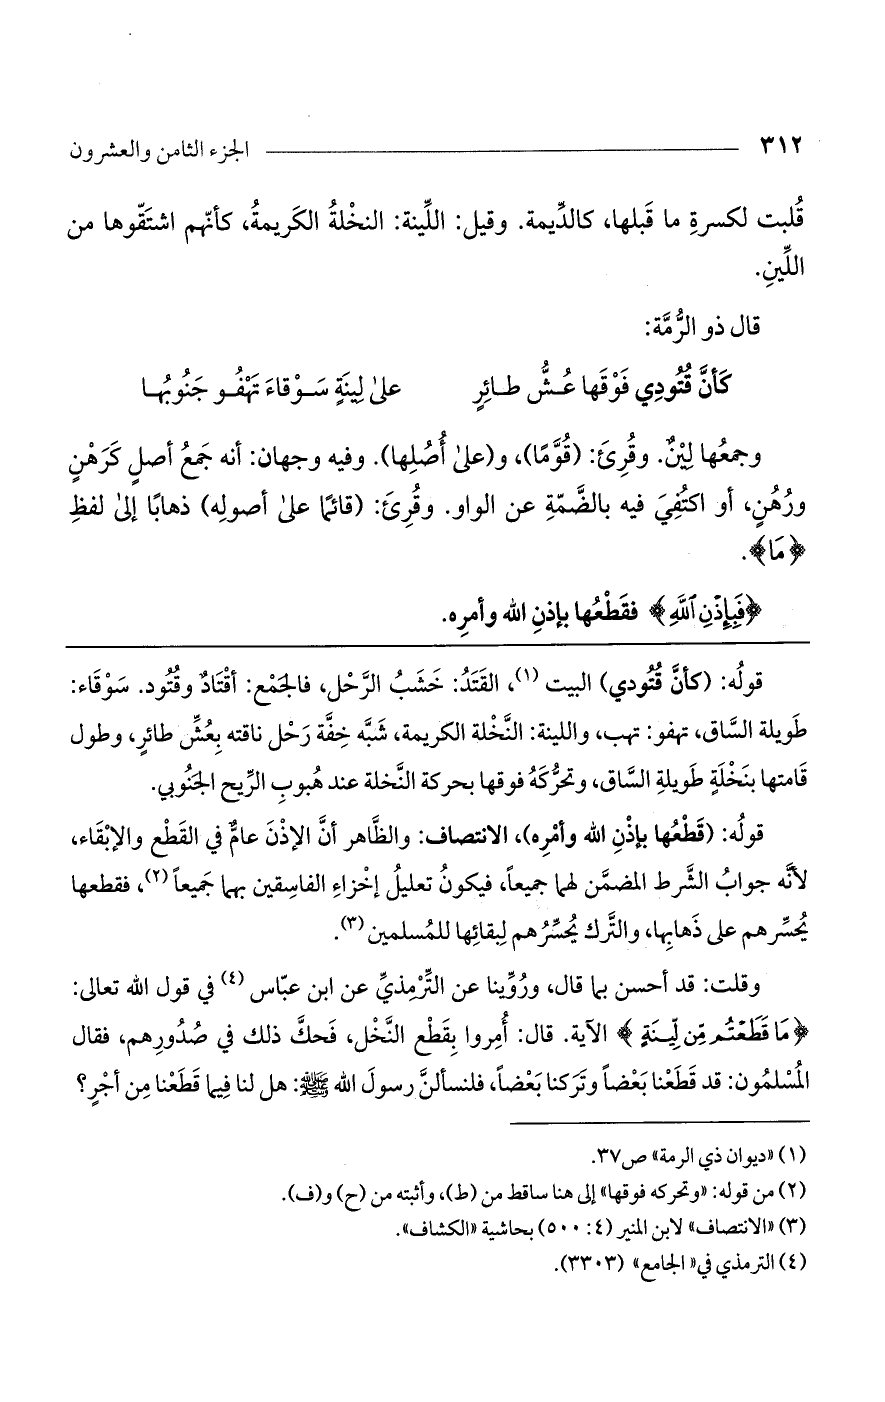 ٣١٢ الجزء الثامن والعشرون
قُلبت لكسرةِ ما قَبلها، كالدِّيمة. وقيل: اللِّينة: النخْلةُ الكَريمةُ، كأنّهم اشتَقّوها من
اللِّينِ.
قال ذو الرُّمَّة:
كَأنَّ قُتُودِي فَوْقَها عُشُّ طائِرٍ علىٰ لِينَةٍ سَوْقاءَ تَهْفُو جَنُوبُها
وجمعُها لِيْنٌ. وقُرِئَ: (قُوَّمًا)، و(علىٰ أُصُلِها). وفيه وجهان: أنه جَمعُ أصلٍ كَرَهْنٍ
ورُهُنٍ، أو اكتُفِيَ فيه بالضَّمّةِ عن الواو. وقُرِئَ: (قائمًا علىٰ أصولِه) ذهابًا إلىٰ لفظِ
﴿مَا﴾.
﴿فَبِإِذْنِ ٱللَّهِ﴾ فقَطْعُها بإذنِ الله وأمرِه.
قولُه: (كأنَّ قُتُودي) البيت (١)، القَتَدُ: خَشَبُ الرَّحْل، فالجَمْع: أقْتَادٌ وقُتُود. سَوْقَاء:
طَويلة السَّاق، تهفو: تهب، واللينة: النَّخْلة الكريمة، شَبَّه خِفَّة رَحْل ناقته بِعُشِّ طائرٍ، وطول
قَامتها بنَخْلَةٍ طَويلةِ السَّاق، وتحرُّكَهُ فوقها بحركة النَّخلة عند هُبوبِ الرِّيح الجَنُوبي.
قولُه: (قَطْعُها بإذْنِ الله وأمْرِه)، الانتصاف: والظَّاهر أنَّ الإذْنَ عامٌّ في القَطْع والإبْقَاء،
لأنَّه جوابُ الشَّرط المضمَّن لهما جميعاً، فيكونُ تعليلُ إخْزاءِ الفاسِقين بهما جَميعاً (٢)، فقطعها
يُحسِّرهم على ذَهابِها، والتَّرك يُحسِّرُهم لِبقائِها للمُسلمين (٣).
وقلت: قد أحسن بما قال، ورُوِّينا عن التِّرْمِذيِّ عن ابن عبّاس (٤) في قول الله تعالى:
﴿مَا قَطَعْتُم مِّن لِّينَةٍ﴾ الآية. قال: أُمِروا بِقَطْع النَّخْل، فَحكَّ ذلك في صُدُورِهم، فقال
المُسْلمُون: قد قَطَعْنا بَعْضاً وتَركنا بَعْضاً، فلنسألنَّ رسولَ الله ﷺ: هل لنا فِيما قَطَعْنا مِن أجْرٍ؟
(١) «ديوان ذي الرمة» ص٣٧.
(٢) من قوله: «وتحركه فوقها» إلى هنا ساقط من (ط)، وأثبته من (ح) و(ف).
(٣) «الانتصاف» لابن المنير (٤: ٥٠٠) بحاشية «الكشاف».
(٤) الترمذي في« الجامع» (٣٣٠٣).